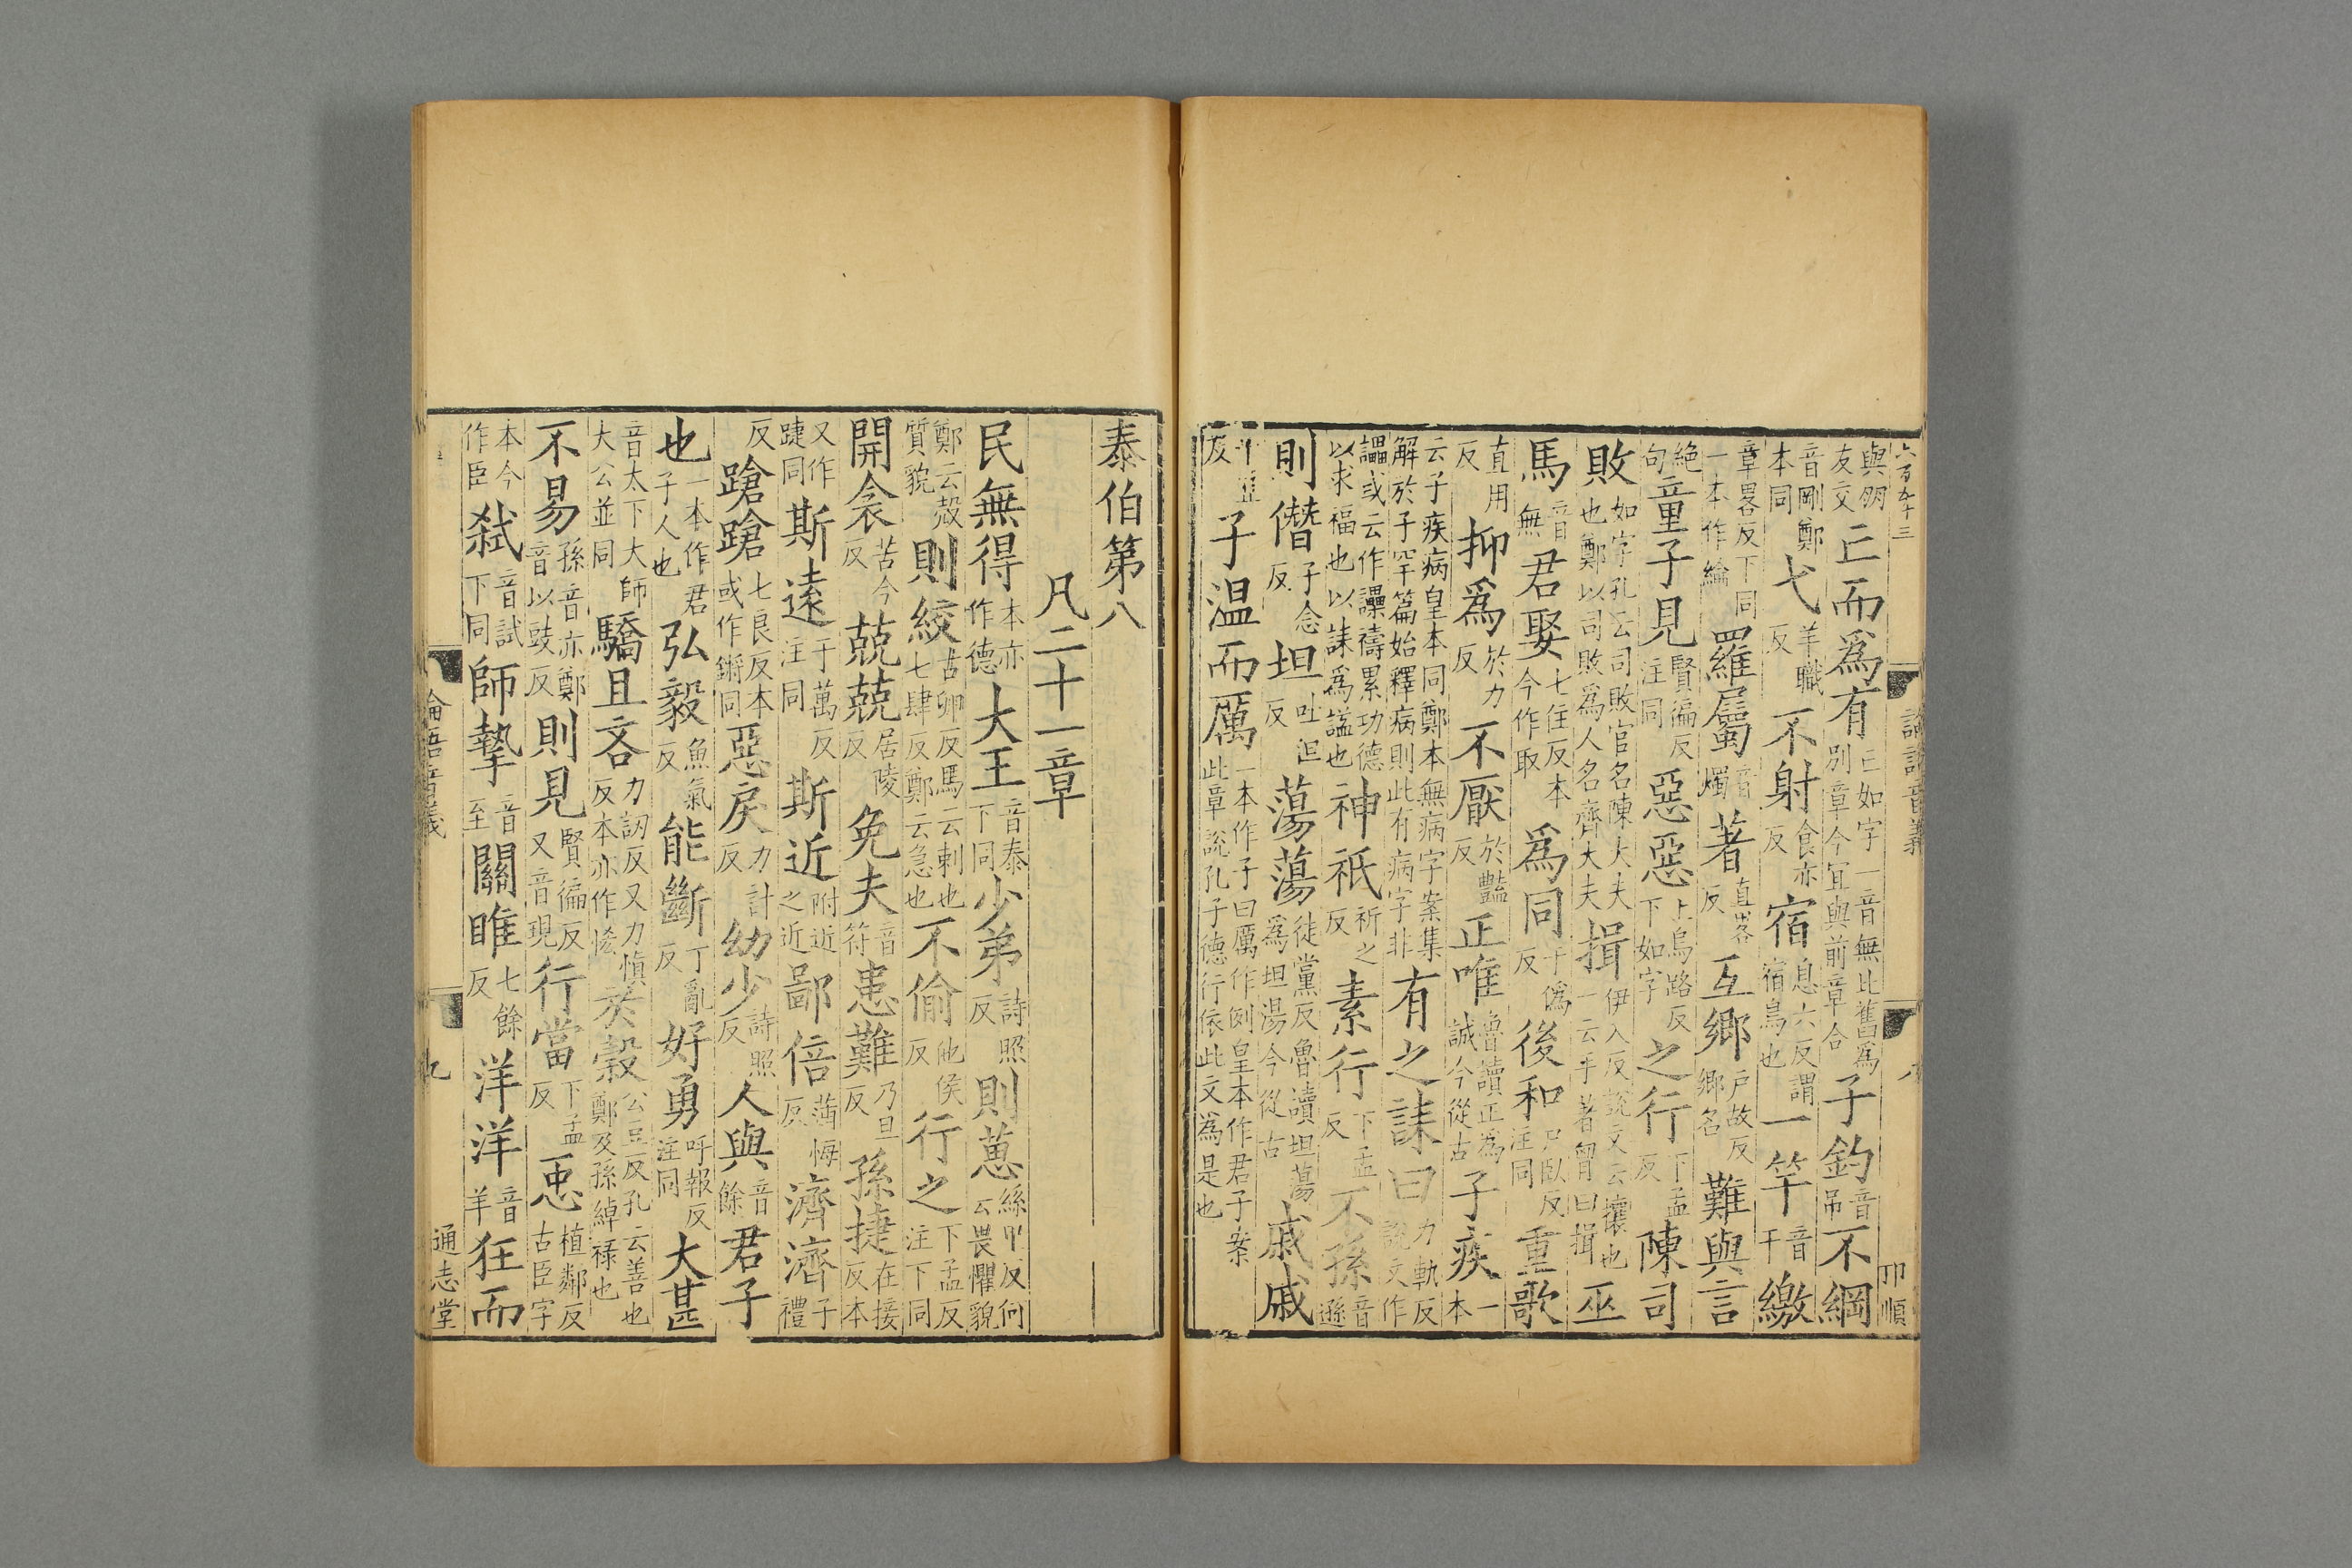 六百五十三 論語音義 八 卭順
與朋友交亡而爲有亡如字一音無此舊爲別章今宜與前章合子釣音吊不綱
音剛鄭本同弋羊職反不射食亦反宿息六反謂宿鳥也一竿音干繳
章畧反下同一本作綸羅屬音燭著直畧反互鄉戶故反鄉名難與言
絶句童子見賢徧反注同惡惡上烏路反下如字之行下孟反陳司
敗如字孔云司敗官名陳大夫也鄭以司敗爲人名齊大夫揖伊入反說文云攘也一云手著胷曰揖巫
馬音無君娶七住反本今作取爲同于僞反後和戶臥反注同重歌
直用反抑爲於力反不厭於豔反正唯魯讀正爲誠今從古子疾一本
云子疾病皇本同鄭本無病字案集解於子罕篇始釋病則此有病字非有之誄曰力軌反說文作
讄或云作讄禱累功德以求福也以誄爲謚也神祇祈之反素行下孟反不孫音遜
則僭子念反坦吐但反蕩蕩徒黨反魯讀坦蕩爲坦湯今從古戚戚
反子温而厲一本作子曰厲作例皇本作君子案此章說孔子德行依此文爲是也
泰伯第八
凡二十一章
民無得本亦作德大王音泰下同少弟詩照反則葸絲里反何云畏懼貌
鄭云愨質貌則絞古卯反馬云刺也七肆反鄭云急也不偷他侯反行之下孟反注下同
開衾苦今反兢兢居陵反免夫音符患難乃旦反孫捷在接反本
又作踕同斯遠于萬反注同斯近附近之近鄙倍蒲悔反濟濟子禮
反蹌蹌七良反本或作鏘同惡戾力計反幼少詩照反人與音餘君子
也一本作君子人也弘毅魚氣反能斷丁亂反好勇呼報反注同大甚
音太下大師大公並同驕且吝力訒反又力愼反本亦作恡於穀公豆反孔云善也鄭及孫綽祿也
不易孫音亦鄭音以豉反則見賢徧反又音現行當下孟反𢘑植鄰反古臣字
本今作臣弒音試下同師摯音至關雎七餘反洋洋音羊狂而
論語音義 九 通志堂